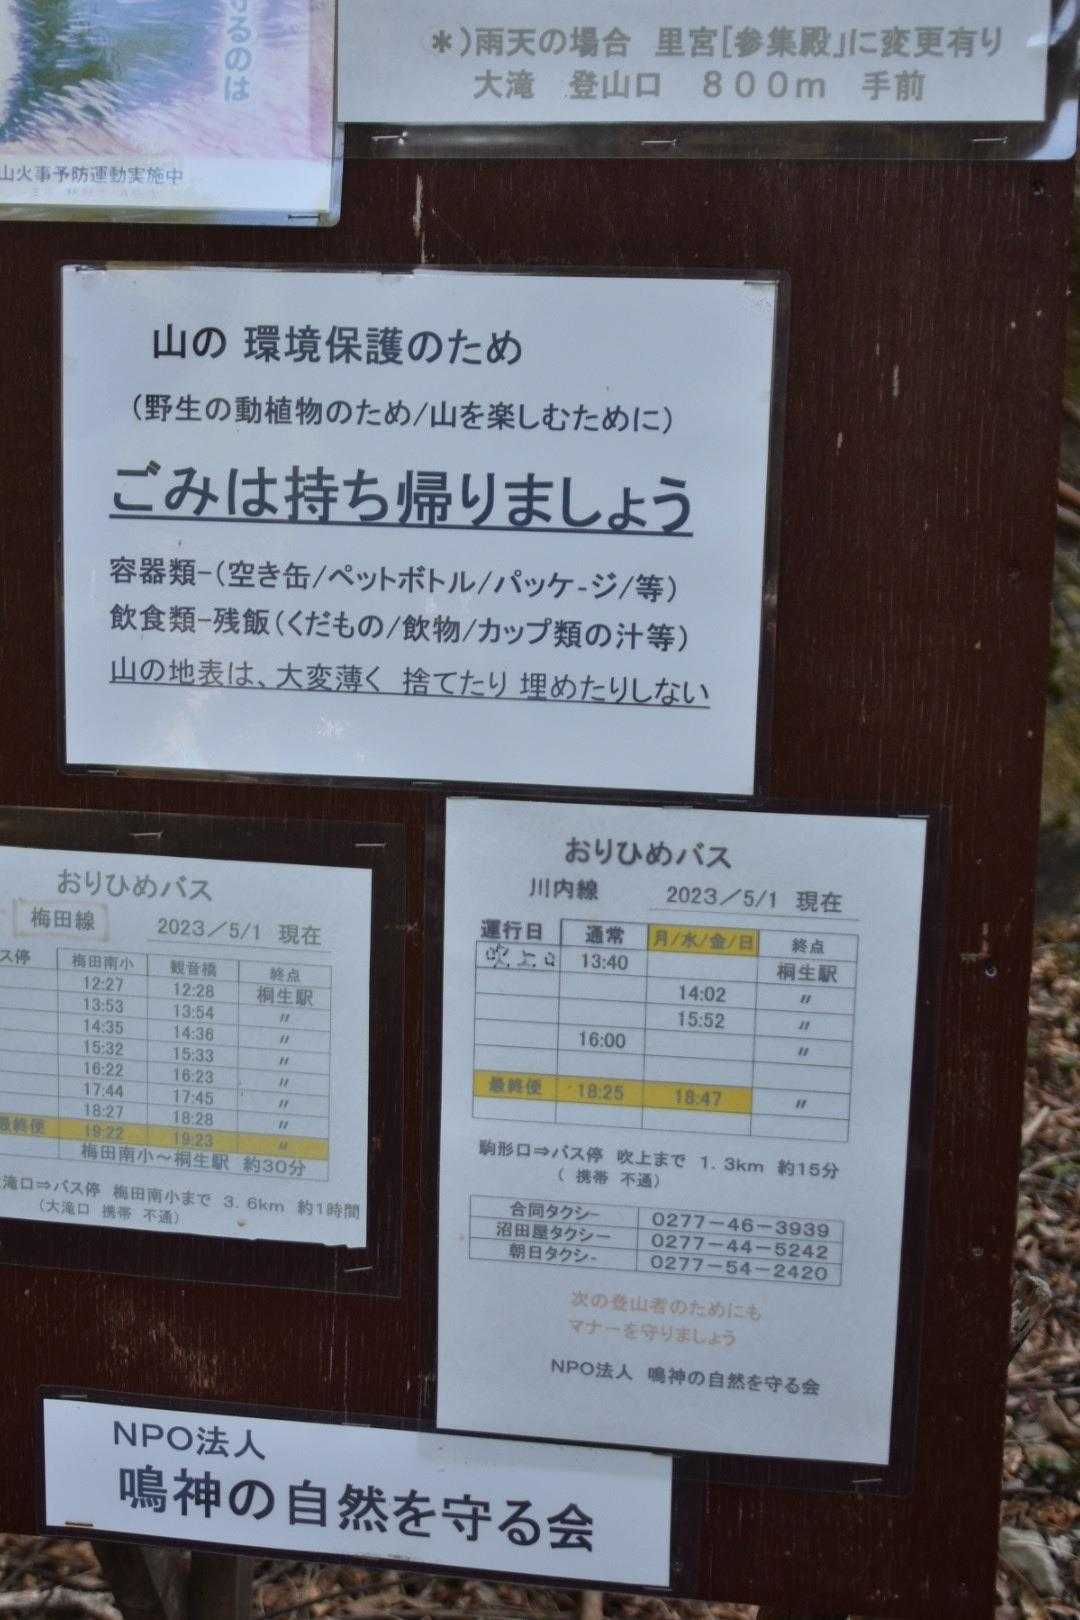 るのは
山火事予防運動実施中
＊）雨天の場合 里宮[参集殿」に変更有り
大滝 登山口 ８００ｍ 手前
山の 環境保護のため
（野生の動植物のため/山を楽しむために）
ごみは持ち帰りましょう
容器類-（空き缶/ペットボトル/パッケ-ジ/等）
飲食類-残飯（くだもの/飲物/カップ類の汁等）
山の地表は、大変薄く 捨てたり 埋めたりしない
おりひめバス
梅田線 2023／5/1 現在
ス停 梅田南小 観音橋 終点
12:27 12:28 桐生駅
13:53 13:54 〃
14:35 14:36 〃
15:32 15:33 〃
16:22 16:23 〃
17:44 17:45 〃
18:27 18:28 〃
最終便 19:22 19:23 〃
梅田南小～桐生駅 約30分
滝口⇒バス停 梅田南小まで 3.6km 約1時間
（大滝口 携帯 不通）
おりひめバス
川内線 2023／5/1 現在
運行日 通常 月/水/金/日 終点
吹上口 13:40 桐生駅
14:02 〃
15:52 〃
16:00 〃
最終便 18:25 18:47 〃
駒形口⇒バス停 吹上まで 1.3km 約15分
（ 携帯 不通）
合同タクシー 0277－46－3939
沼田屋タクシー 0277－44－5242
朝日タクシ- 0277－54－2420
次の登山者のためにも
マナーを守りましょう
NPO法人 鳴神の自然を守る会
NPO法人
鳴神の自然を守る会